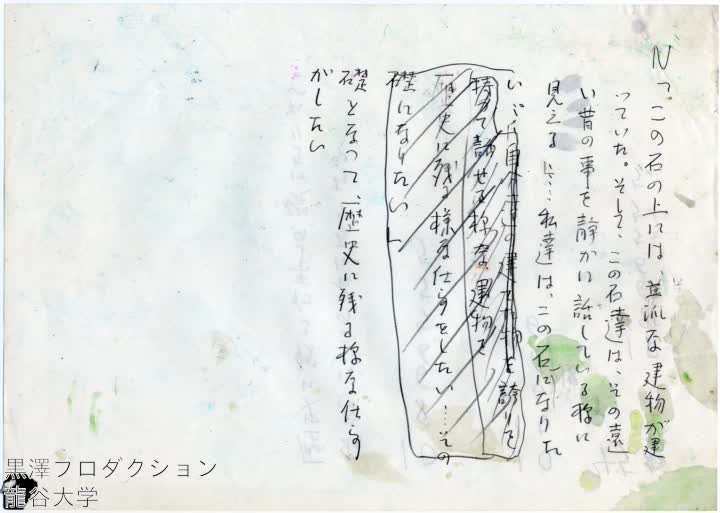 N「この石の上には、立派な建物が建
っていた。そして、この石達は、その遠
い昔の事を静かに話している様に
見える……私達は、この石になりた
い……自分達の建てた物を誇りを
持って話せる様な建物を
歴史に残る様な仕事をしたい……その
礎になりたい」
礎となって、歴史に残る様な仕事
がしたい
黒澤プロダクション
龍谷大学